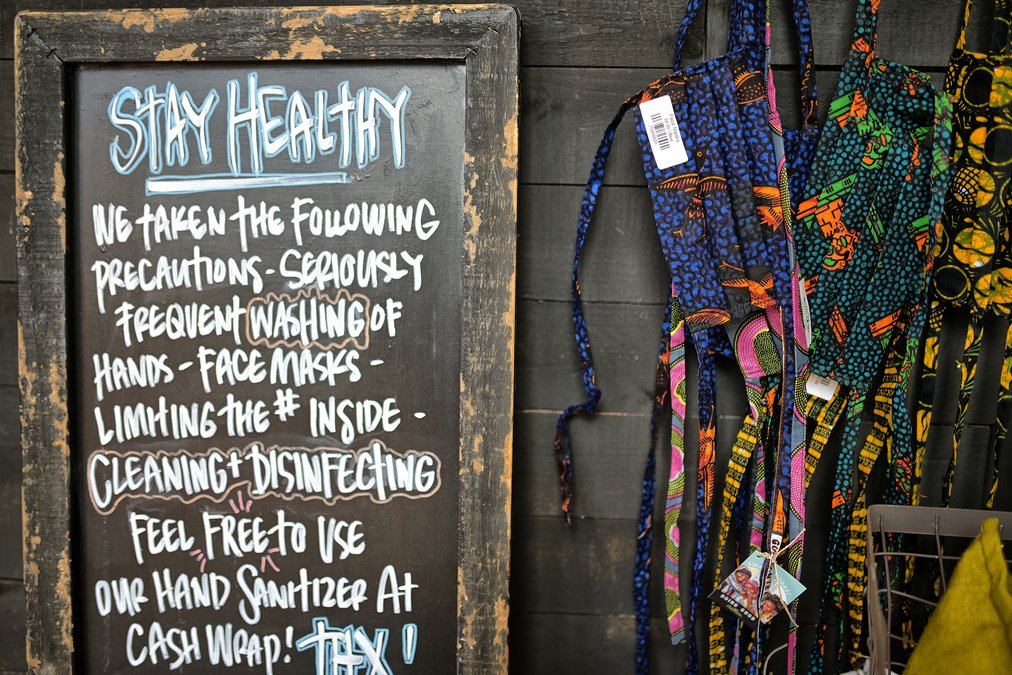 STAY HEALTHY
WE TAKEN THE FOLLOWING
PRECAUTIONS - SERIOUSLY
FREQUENT WASHING OF
HANDS - FACE MASKS -
LIMITING THE # INSIDE -
CLEANING + DISINFECTING
FEEL FREE TO USE
OUR HAND SANITIZER AT
CASH WRAP! THX!